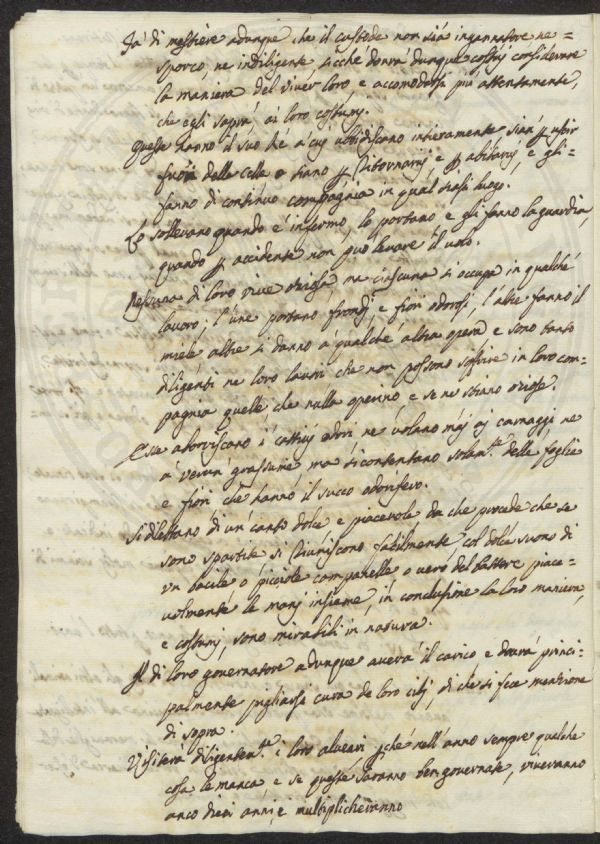 Fà di mestiere adunque che il custode non sia ingannatore ne=
sporco, ne indiligente, sicchè dovrà dunque costui considerare
la maniera del viver loro e accomodarsi più attentamente,
che egli saprà ai loro costumi.
Queste hanno il suo Rè a cui ubbidiscano intieramente sian p uscir
fuori delle Celle o siano p Ritornarvj e p abitarvj, e gli=
fanno di continuo compagnia in qual siasi luogo.
Lo sollevano quando è infermo, lo portano e gli fanno la guardia,
quando p accidente non può levare il volo.
Nessuna di loro vive oziosa ma ciascuna si occupa in qualche
lavoro; l'une portano frondj, e fiori odorosi, l'altre fanno il
miele altre si danno a qualche altra opera e sono tanto
diligenti ne loro lavori che non possono soffrire in loro com=
pagnia quelle che nulla operino e se ne stiano oziose.
Esse aborriscano i cattivj odori ne volano maj ai carnaggi ne
a verun grassume ma si contentano solam.te delle foglie
e fiori che hanno il succo odorifero.
Si dilettano di un canto dolce e piacevole da che procede che se
sono spartite si Riuniscono facilmente col dolce suono di
un bacile o picciole campanelle o vero del battere piace=
volmente le manj insieme, in conclusione la loro maniera,
e costumj, sono mirabili in natura.
Il di loro governatore adunque averà il carico e dovrà princi=
palmente pigliarsi cura de loro cibj, di che si fece menzione
di sopra.
Visiterà diligentem.te i loro alveari p.chè nell'anno sempre qualche
cosa le manca e se queste saranno ben governate, viveranno
anco dieci anni, e multiplicheranno